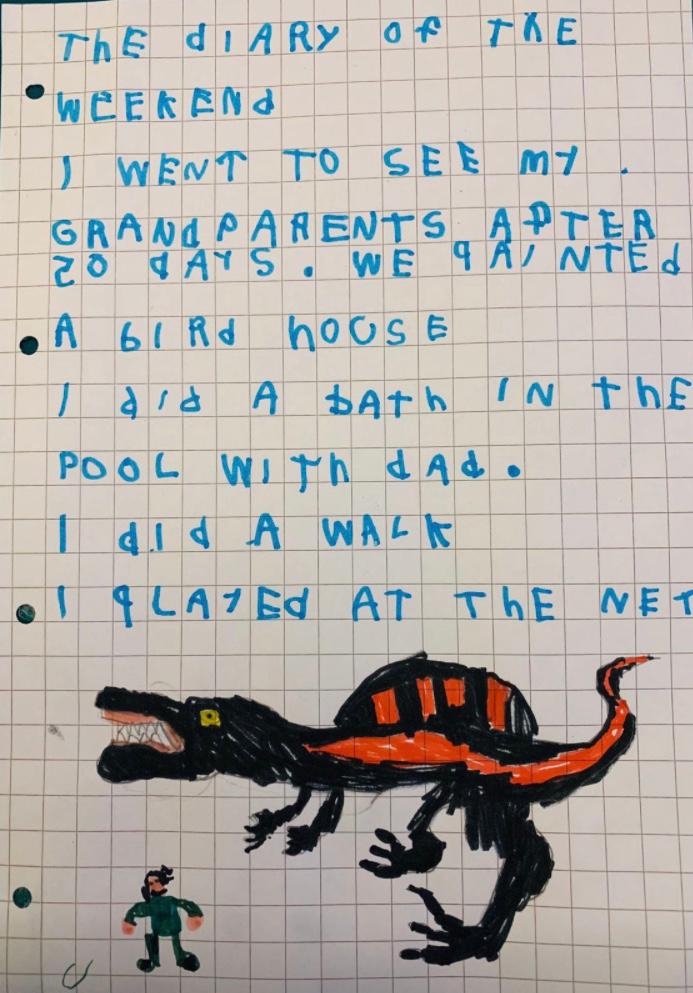 ThE dIARY of ThE
WEEKENd
I WENT TO SEE MY .
GRANdPARENTS APTER
20 dAYS . WE qAINTEd
A bIRd hOUSE
I did A bATh IN ThE
POOL WITh dAd .
I did A WALK
I qLAYEd AT ThE NET